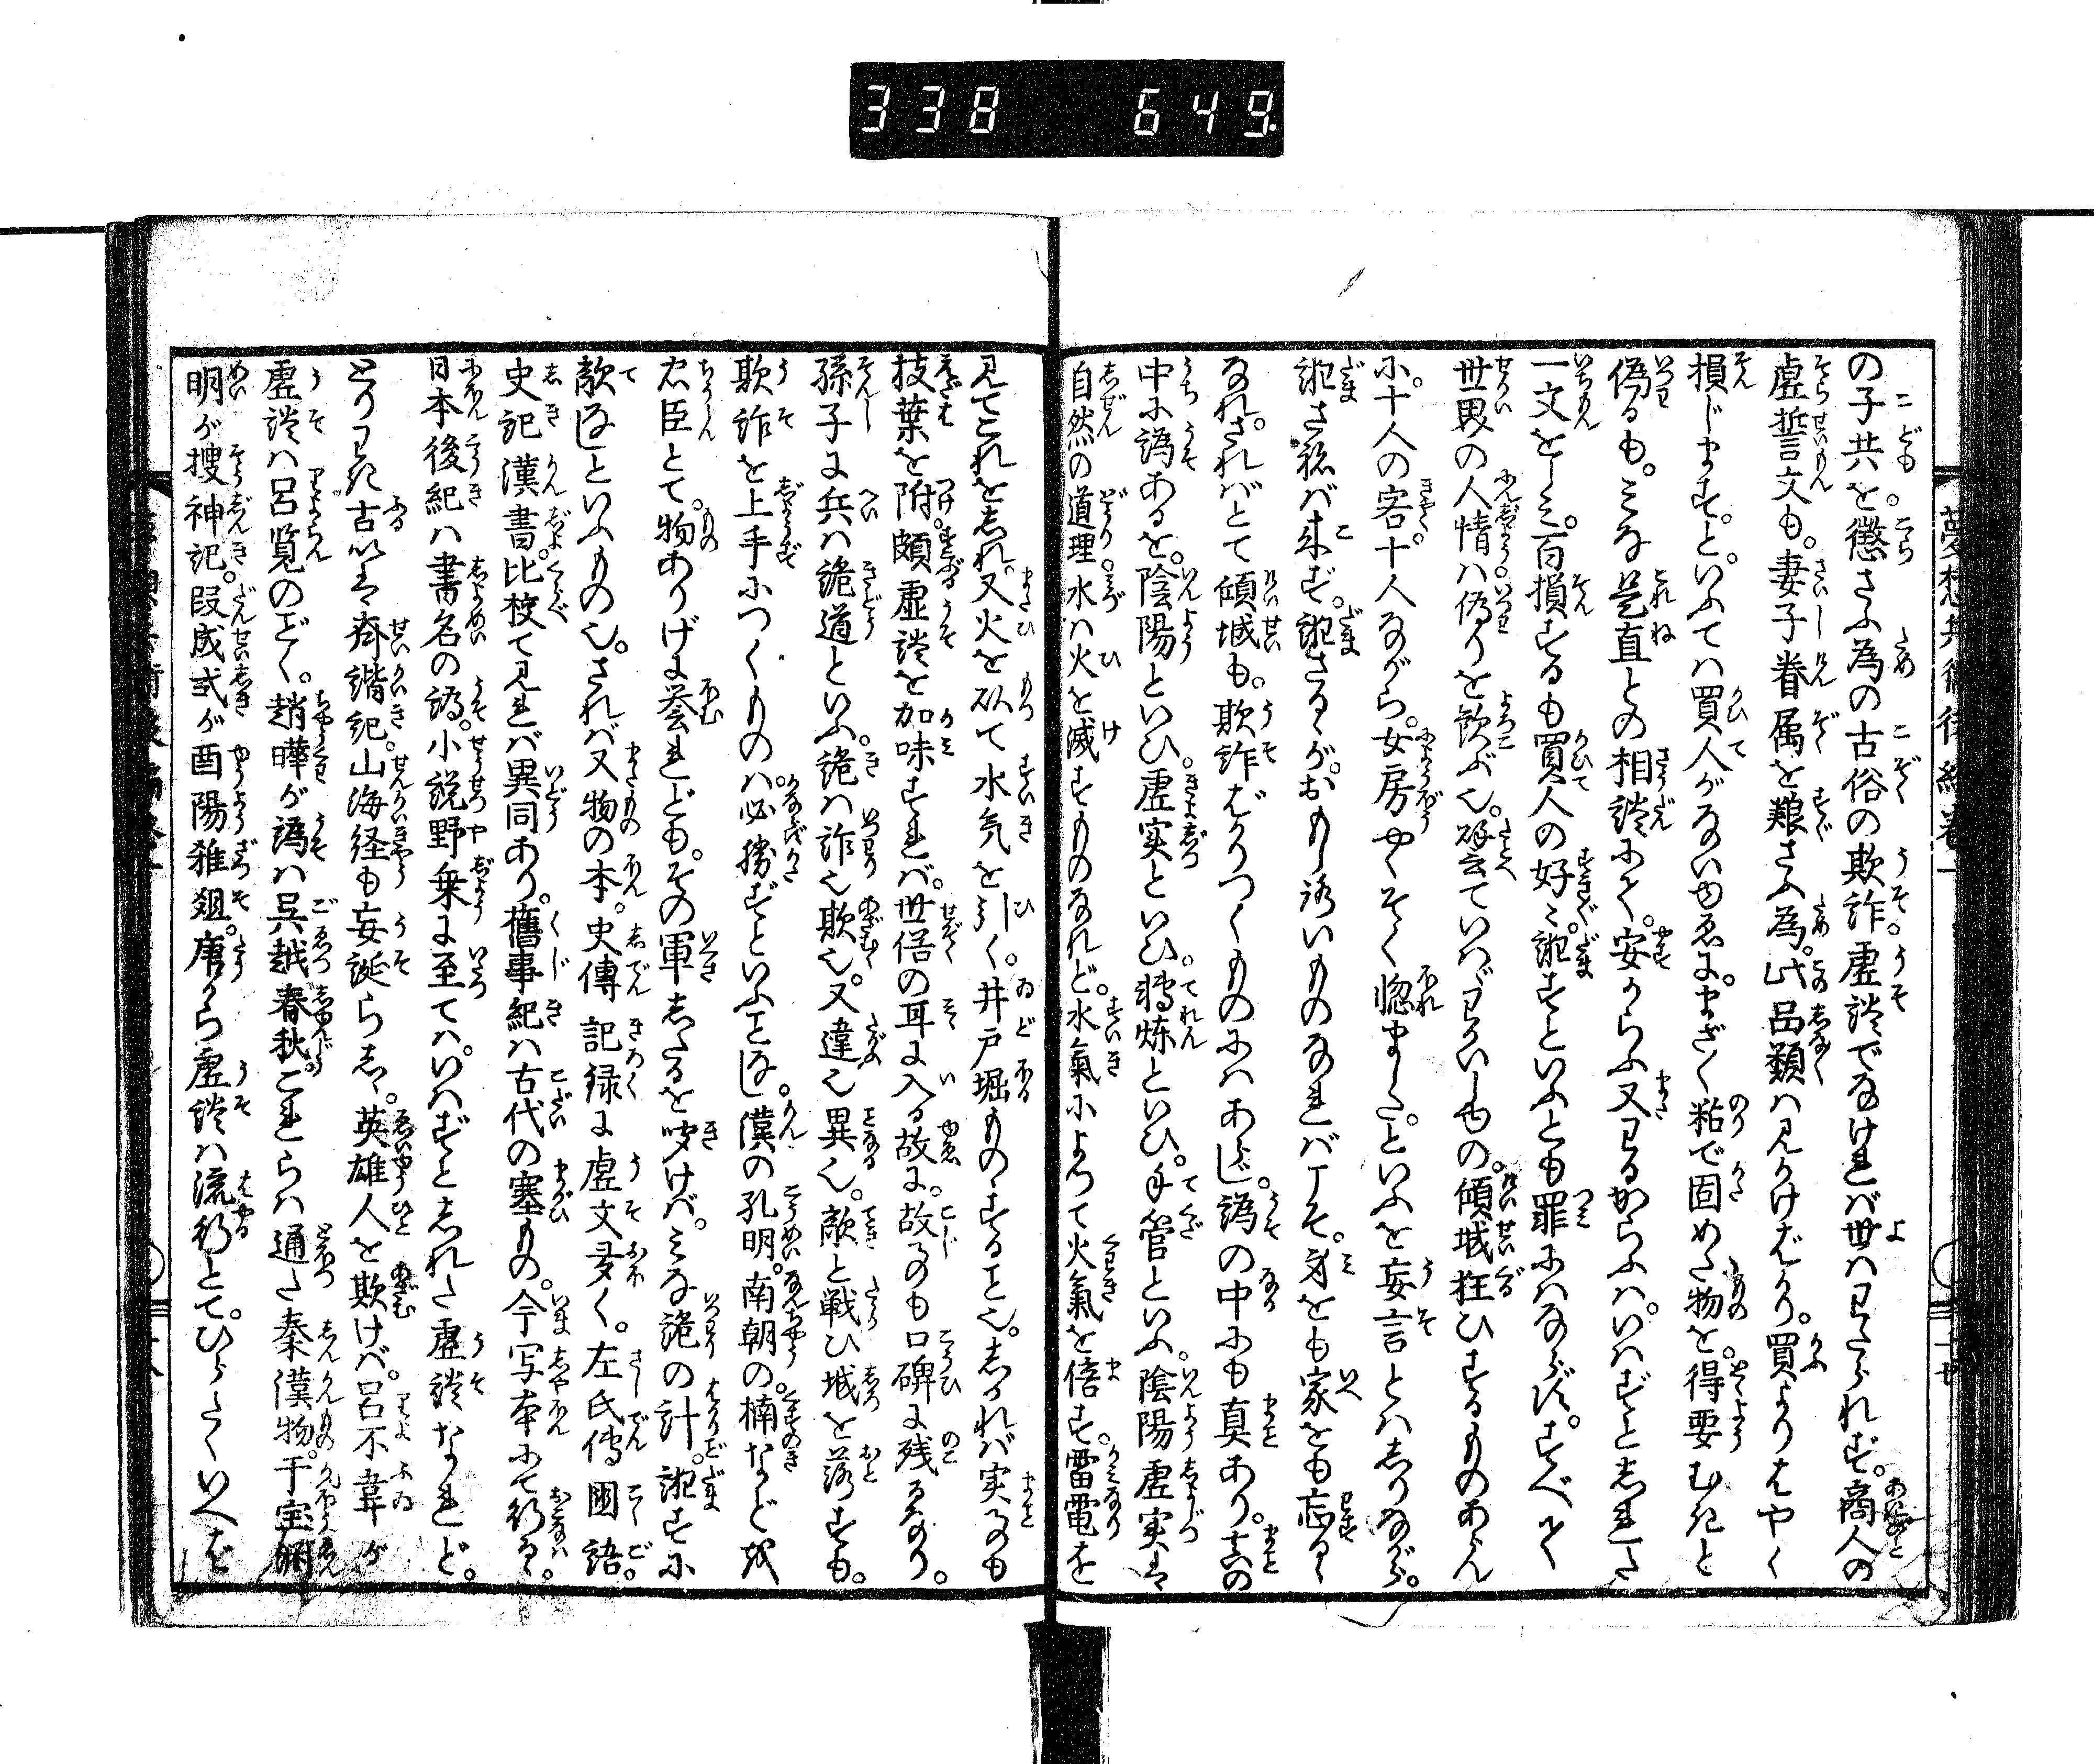 338 649
の子共を。懲さふ為の古俗の欺詐。虚談でなけれバ世ハわたられず。商人の
虚誓文も。妻子眷属を粮さふ為。此品類ハ見かけばかり。買よりはやく
損じます。と。いふてハ買人がないゆゑに。まざ〳〵粘で固めた物を。得要むきと
偽るも。みな是直との相談にて。安からふ又わるからふハ。いはずとしれた
一文をしみ。百損するも買人の好々。誑すといふとも罪にハならず。すべて
世界の人情ハ偽りを歓ぶ也。譬ていはゞわかいしゆの。傾城狂ひするものあらん
に。十人の客。十人ながら。女房やくそく惚ました。といふを妄言とハしりながら。
誑さねバ来ず。誑さるゝがおもしろいものなれバこそ。身をも家をも忘るゝ
なれ。さればとて傾城も。欺詐ばかりつくものにハあらじ。譌の中にも真あり。真の
中に譌あるを。陰陽といひ。虚実といひ。轉炼といひ。手管といふ。陰陽虚実は
自然の道理。水ハ火を滅すものなれど。水氣によつて火氣を倍す。雷電を
見てこれをしれ。又火を以て水気を引く。井戸堀ものゝすること也。しかれバ実事も
枝葉を附。頗虚談を加味すれバ。世俗の耳に入る故に。故事も口碑に残るなり。
孫子に兵ハ詭道といふ。詭ハ詐也欺也。又違也異也。敵と戦ひ城を落すも。
欺詐を上手につくものハ。必勝ずといふことなし。漢の孔明。南朝の。楠などハ
忠臣とて。物ありげに誉れども。その軍したるを聞けバ。みな詭の計。誑すに
敵なしといふもの也。されバ又物の本。史傳記録に虚文多く。左氏傳國語。
史記漢書。比校て見れバ異同あり。舊事紀ハ古代の塞もの。今写本にて行るゝ。
日本後紀ハ書名の譌。小説野乗に至てハ。いはずとしれた虚談なれど。
とりわき古いは齊諧紀。山海経も妄誕らしく。英雄人を欺けバ。呂不韋が
虚談ハ呂覧のごく。趙曄が譌ハ呉越春秋。これらハ通た秦漢物。干宝
明が搜神記。段成式が酉陽雑俎。唐から虚談ハ流行とて。ひらたくいへば